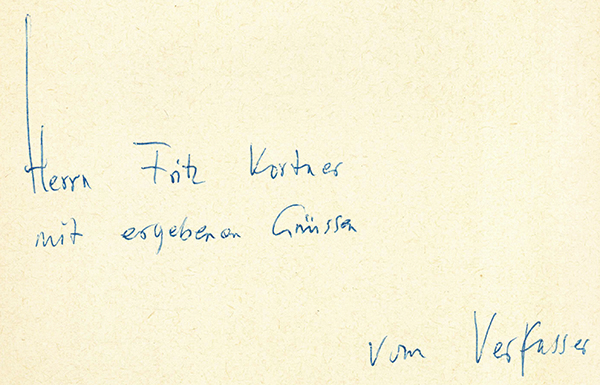 Herrn Fritz Kortner
mit ergebenen Grüssen
vom Verfasser